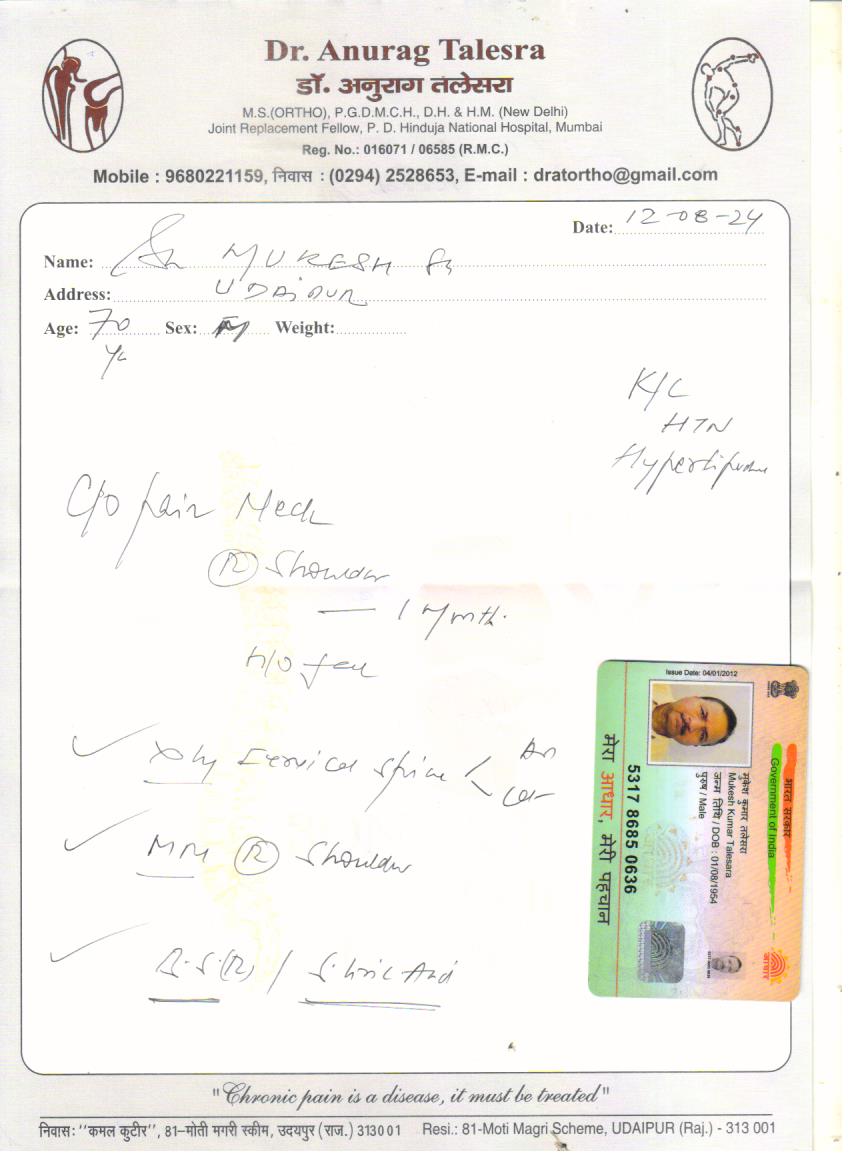 Dr. Anurag Talesra
डॉ. अनुराग तलेसरा
M.S.(ORTHO), P.G.D.M.C.H., D.H. & H.M. (New Delhi)
Joint Replacement Fellow, P. D. Hinduja National Hospital, Mumbai
Reg. No.: 016071 / 06585 (R.M.C.)
Mobile : 9680221159, निवास : (0294) 2528653, E-mail : dratortho@gmail.com
Date: 12-08-24
Name: MUKESH
Address: UDAIPUR
Age: 70 Sex: M Weight:
K/C
HTN
C/o pain Neck
(R) Shoulder
— 1 month.
H/O
Cervical Spine < AP
Lat
(R) Shoulder
Issue Date: 04/01/2012
भारत सरकार
Government of India
मुकेश कुमार तलेसरा
Mukesh Kumar Talesara
जन्म तिथि / DOB : 01/08/1954
पुरुष / Male
5317 8685 0636
मेरा आधार, मेरी पहचान
आधार
"Chronic pain is a disease, it must be treated"
निवास: ''कमल कुटीर'', 81–मोती मगरी स्कीम, उदयपुर (राज.) 313001 Resi.: 81-Moti Magri Scheme, UDAIPUR (Raj.) - 313 001